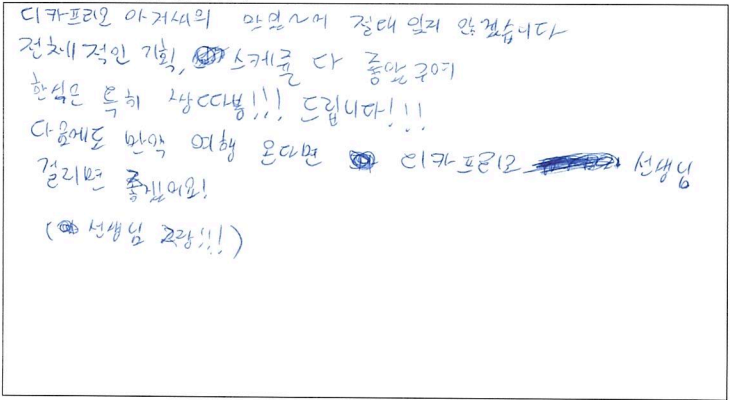 디카프리오 아저씨의 절대 잊지 않겠습니다
전체적인 기획, 스케쥴 다 좋았구여
한식은 특히 쌍따봉!!! 드립니다!!!
다음에도 만약 여행 온다면 디카프리오 선생님
걸리면 좋겠어요!
( 선생님 짱!!!)